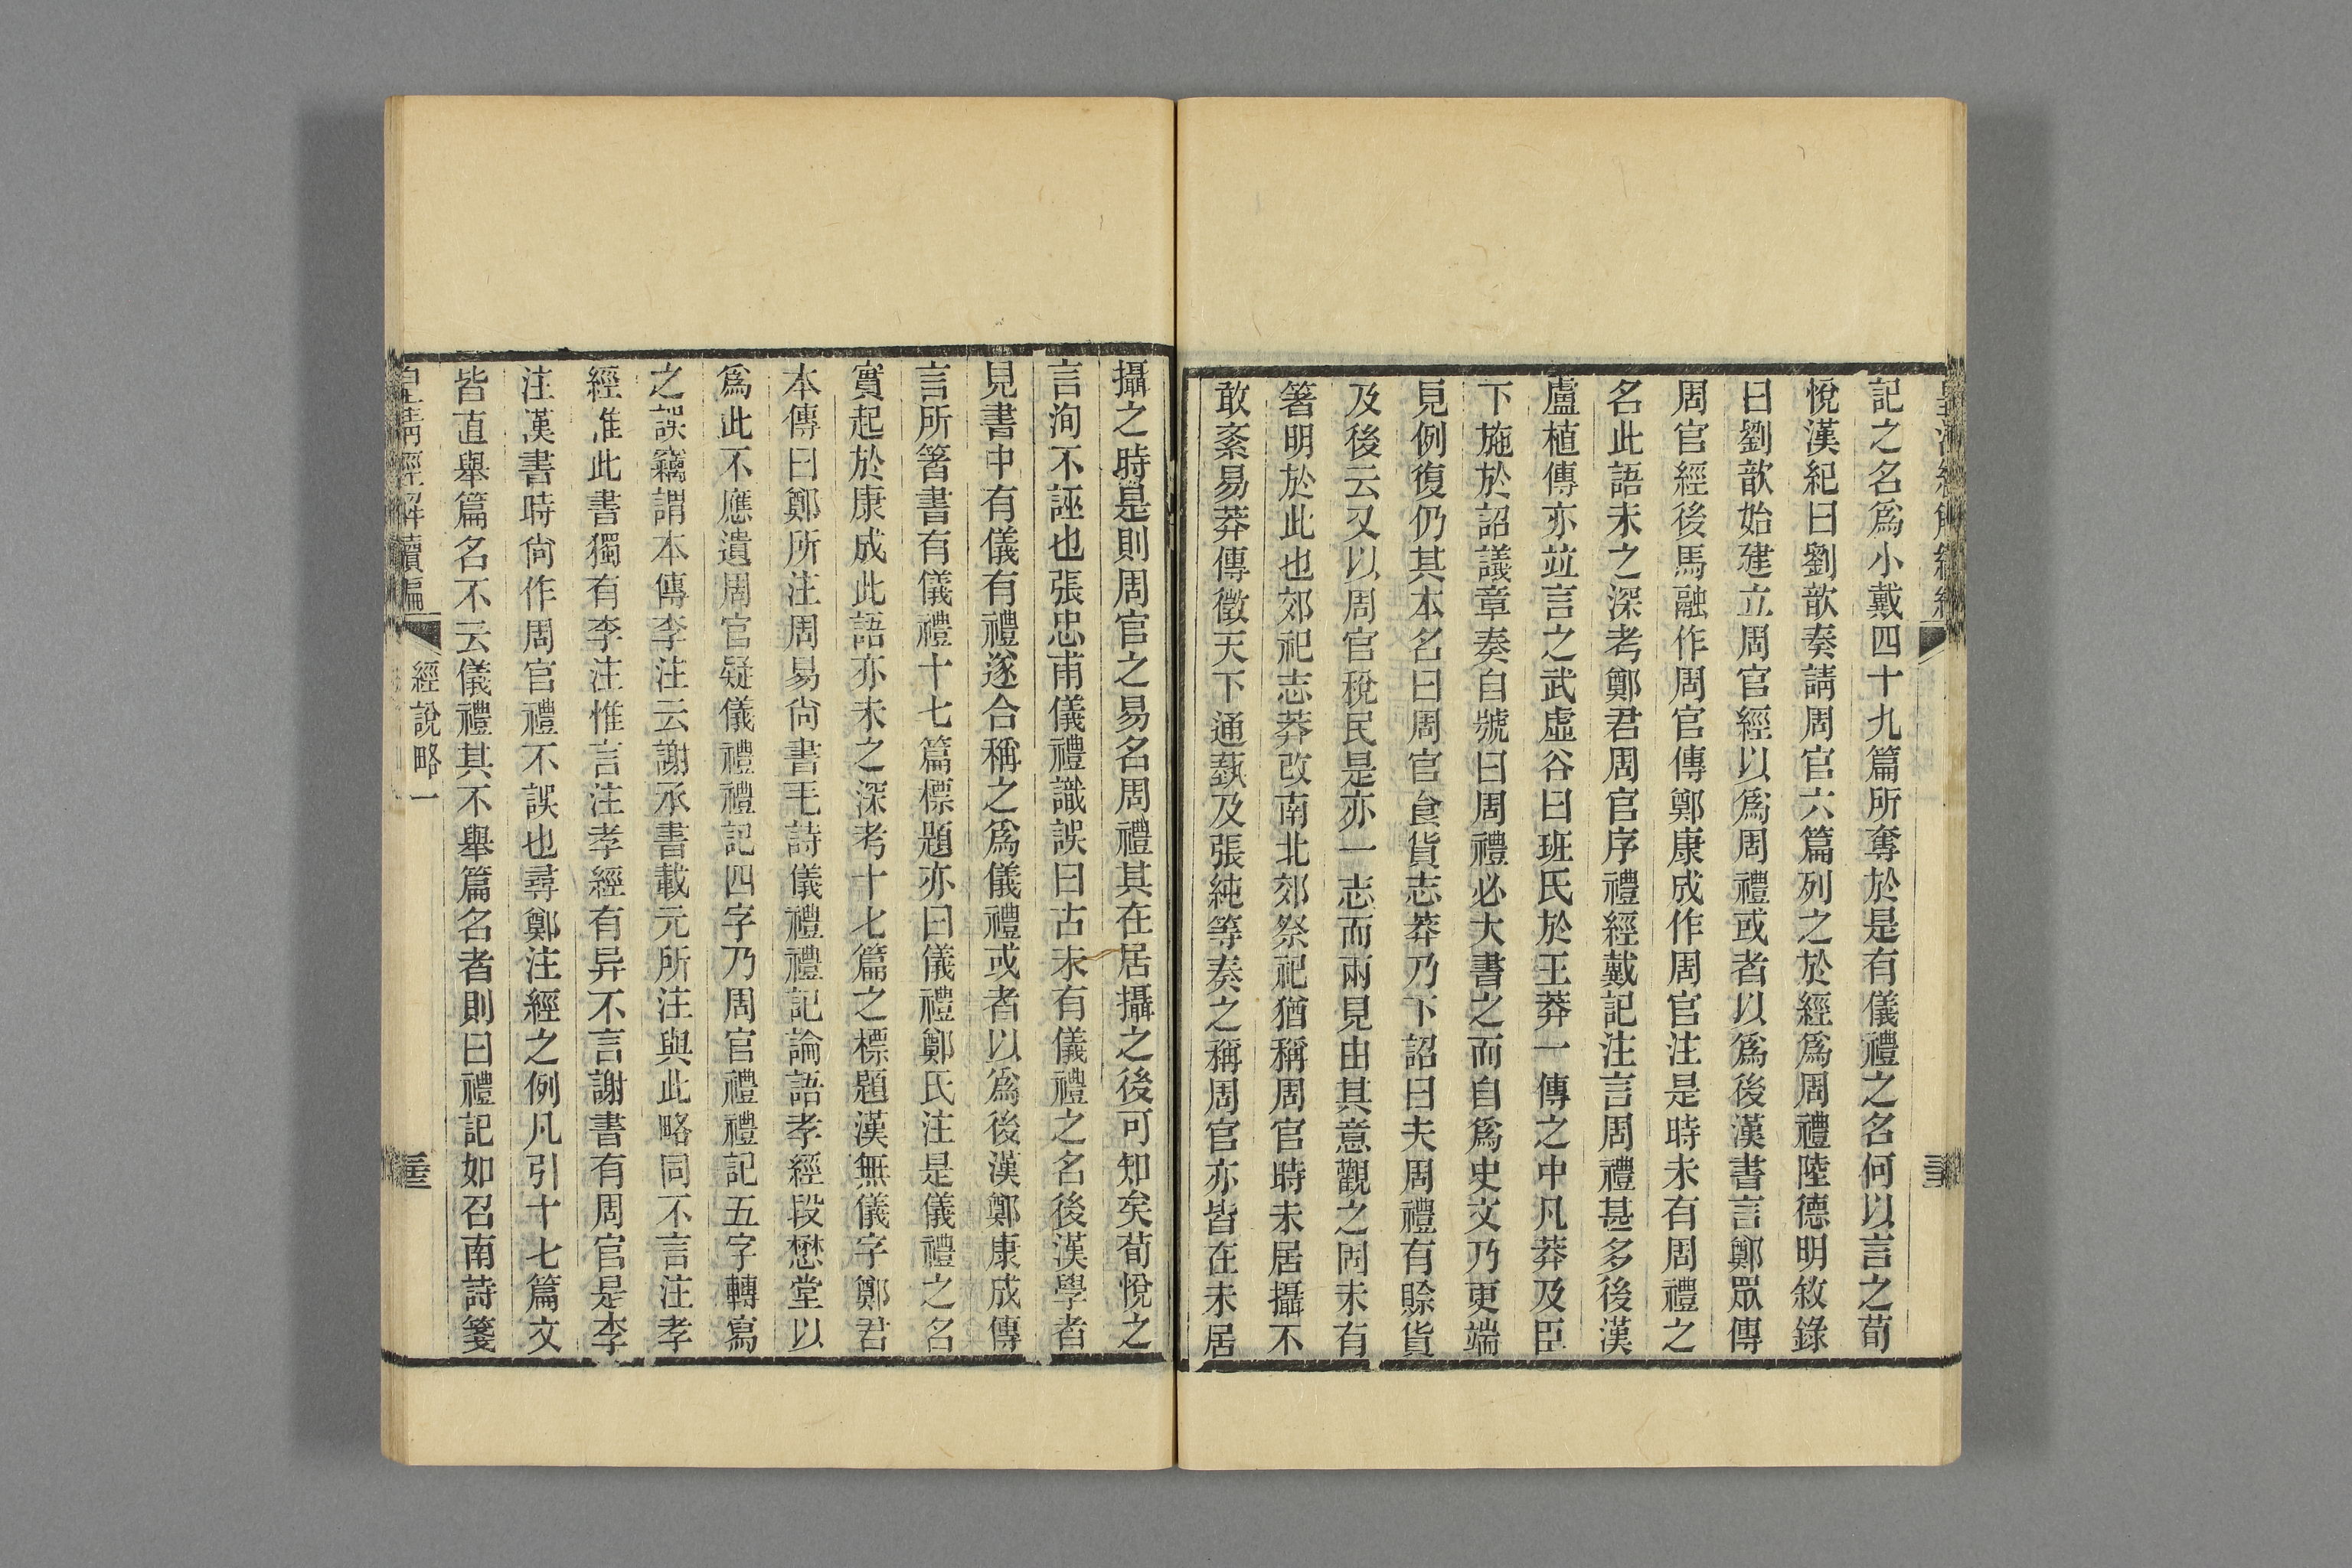 記之名爲小戴四十九篇所奪於是有儀禮之名何以言之荀
悅漢紀曰劉歆奏請周官六篇列之於經爲周禮陸德明敘錄
曰劉歆始建立周官經以爲周禮或者以爲後漢書言鄭眾傳
周官經後馬融作周官傳鄭康成作周官注是時未有周禮之
名此語未之深考鄭君周官序禮經戴記注言周禮甚多後漢
盧植傳亦竝言之武虛谷曰班氏於王莽一傳之中凡莽及臣
下施於詔議章奏自號曰周禮必大書之而自爲史文乃更端
見例復仍其本名曰周官食貨志莽乃下詔曰夫周禮有賒貨
及後云又以周官稅民是亦一志而兩見由其意觀之固未有
箸明於此也郊祀志莽改南北郊祭祀猶稱周官時未居攝不
敢紊易莽傳徵天下通蓺及張純等奏之稱周官亦皆在未居
攝之時是則周官之易名周禮其在居攝之後可知矣荀悅之
言洵不誣也張忠甫儀禮識誤曰古未有儀禮之名後漢學者
見書中有儀有禮遂合稱之爲儀禮或者以爲後漢鄭康成傳
言所箸書有儀禮十七篇標題亦曰儀禮鄭氏注是儀禮之名
實起於康成此語亦未之深考十七篇之標題漢無儀字鄭君
本傳曰鄭所注周易尙書毛詩儀禮禮記論語孝經段懋堂以
爲此不應遺周官疑儀禮禮記四字乃周官禮禮記五字轉寫
之誤竊謂本傳李注云謝承書載元所注與此略同不言注孝
經准此書獨有李注惟言注孝經有异不言謝書有周官是李
注漢書時尙作周官禮不誤也尋鄭注經之例凡引十七篇文
皆直舉篇名不云儀禮其不舉篇名者則曰禮記如召南詩箋
皇淸經解續編
經說略一